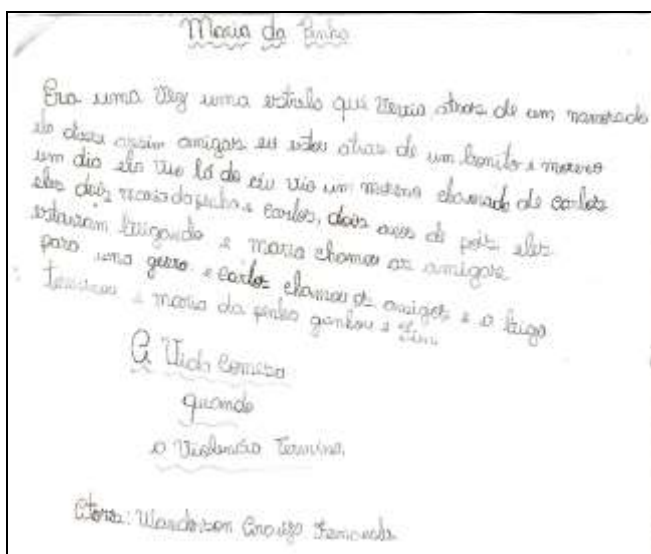 Maria da Penha
Era uma vez uma estrela que vevia atras de um namorado
ela disse assim amigas eu estou atras de um bonito e moreno
um dia ela viu lá do céu viu um moreno chamado de carlos
eles dois maria da penha e carlos, dois anos de pois eles
estavam brigando e maria chamou as amigas
para uma gerra e carlos chamou os amigos e a briga
terminou e maria da penha ganhou e Fim
A Vida Comesa
quando
a Violencia Termina.
Wanderson Araujo